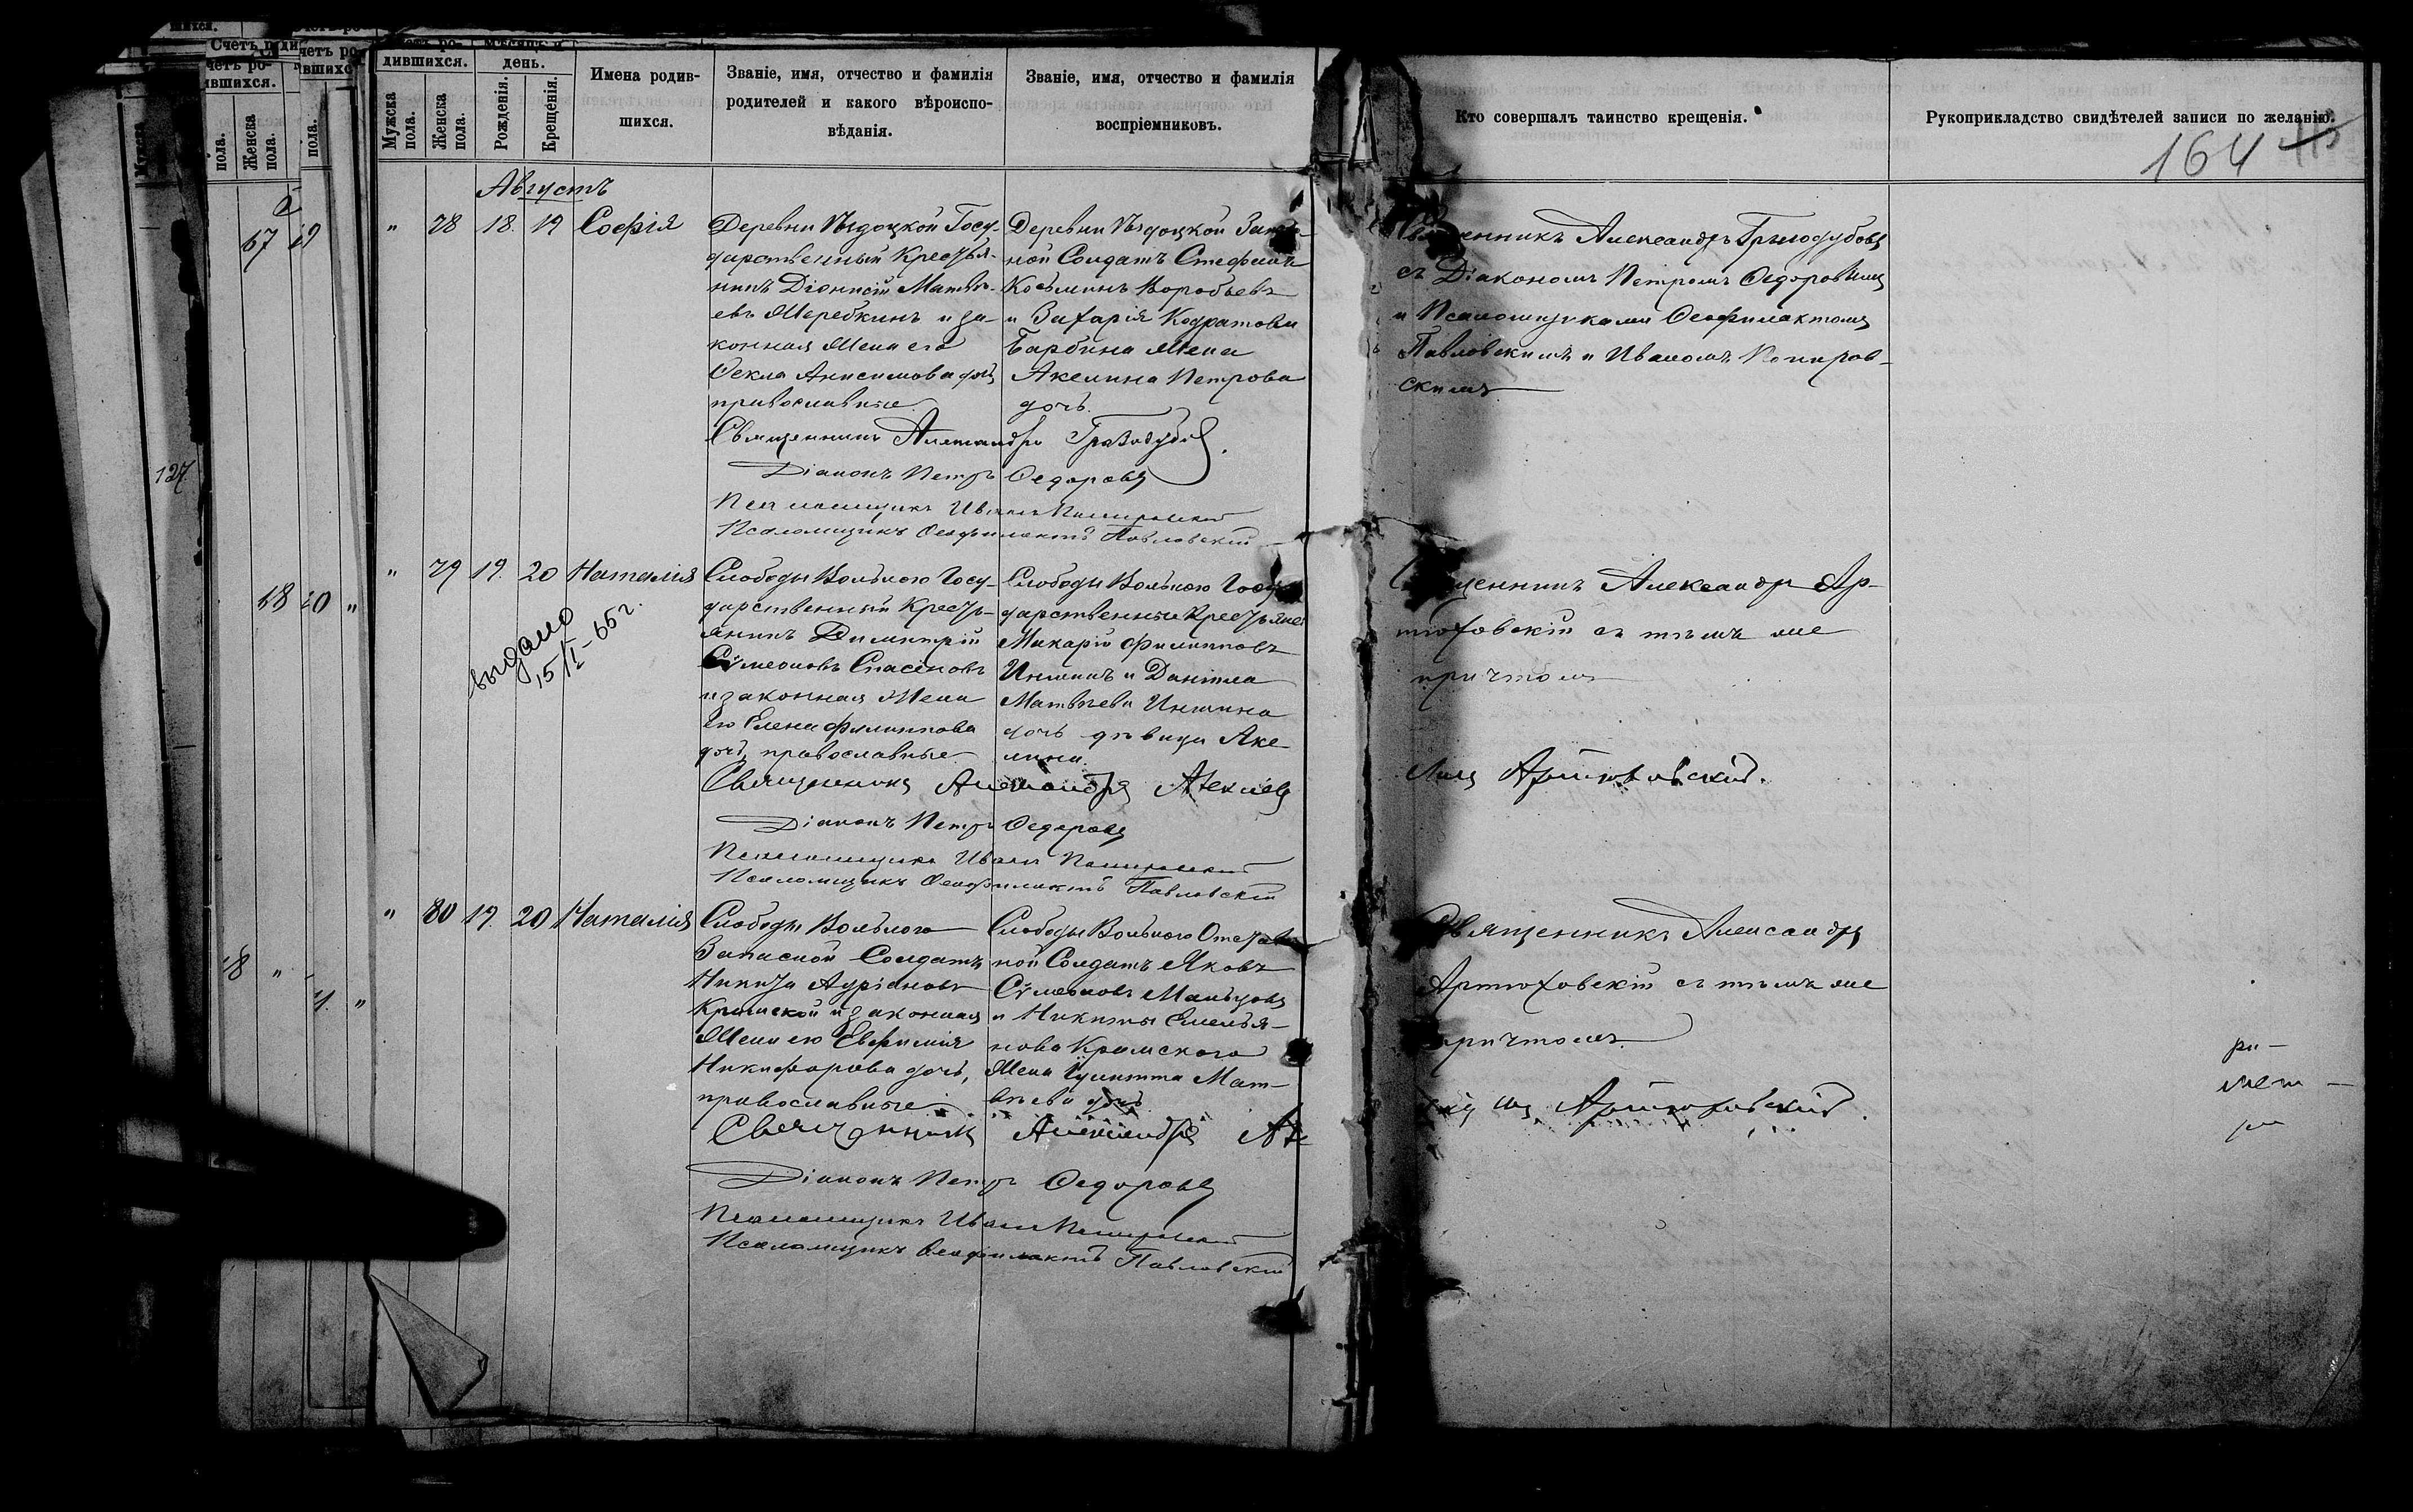 Счетъ ро-
дившихся.
Мѣсяцъ и
день.
Мужска
пола.
Женска
пола.
Рожденія.
Крещенія.
Имена родив-
шихся.
Званіе, имя, отчество и фамилія
родителей и какого вѣроиспо-
вѣданія.
Званіе, имя, отчество и фамилія
воспріемниковъ.
Кто совершалъ таинство крещенія.
Рукоприкладство свидѣтелей записи по желанію.
164
Августъ
" 78 18. 19 Софія
Деревни Госу-
дарственный Крестья-
нинъ Діонисій Матвѣ-
евъ Жеребкинъ и за-
конная Жена его
Ѳекла Анисимова дочь
православные.
Деревни
ной Солдатъ Стефанъ
Козьминъ Воробьевъ
и Захарія Кодратова
Барбина Жена
Акелина Петрова
дочь.
Александръ
съ Діакономъ Петромъ Ѳедоровымъ
и Псаломщиками Ѳеофилактомъ
Павловскимъ и Иваномъ
скимъ
Священникъ Александръ
Діаконъ Петръ Ѳедоровъ
Псаломщикъ Иванъ
Псаломщикъ Ѳеофилактъ Павловскій
" 79 19. 20 Наталія
выдано
15/I-66 г.
Слободы Вольного Госу-
дарственный Кресть-
янинъ Димитрій
Сѵмеоновъ Спасеновъ
и законная Жена
его Елена Филиппова
дочь, православные.
Слободы Вольного Госу-
дарственные Крестьяне
Макарій Филипповъ
Иншинъ и Даніила
Матвѣева Иншина
дочь дѣвица Аке-
лина.
Александръ Ар-
тюховскій съ тѣмъ же
причтомъ
Артюховскій.
Священникъ Александръ
Діаконъ Петръ Ѳедоровъ
Псаломщикъ Иванъ
Псаломщикъ Ѳеофилактъ Павловскій
" 80 19. 20 Наталія
Слободы Вольного
Запасной Солдатъ
Никита Адріановъ
Крымской и законная
Жена его Евфимія
Никифорова дочь,
православные.
Слободы Вольного Отстав-
ной Солдатъ Яковъ
Сѵмеоновъ Мальцовъ
и Никиты Емелья-
нова Крымского
Жена Іулитта Мат-
вѣева дочь.
Священникъ Александръ
Артюховскій съ тѣмъ же
причтомъ.
Артюховскій.
Священникъ Александръ
Діаконъ Петръ Ѳедоровъ
Псаломщикъ Иванъ
Псаломщикъ Ѳеофилактъ Павловскій
127
67 19
20 "
18 "